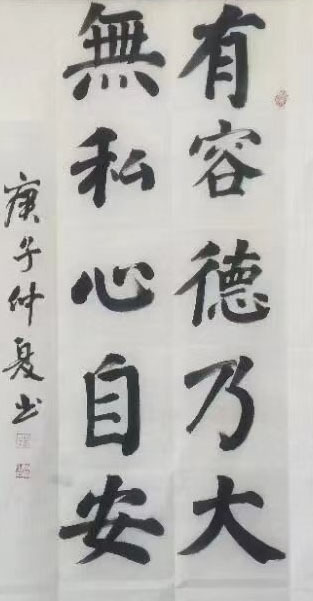 有容德乃大
無私心自安
庚子仲夏书